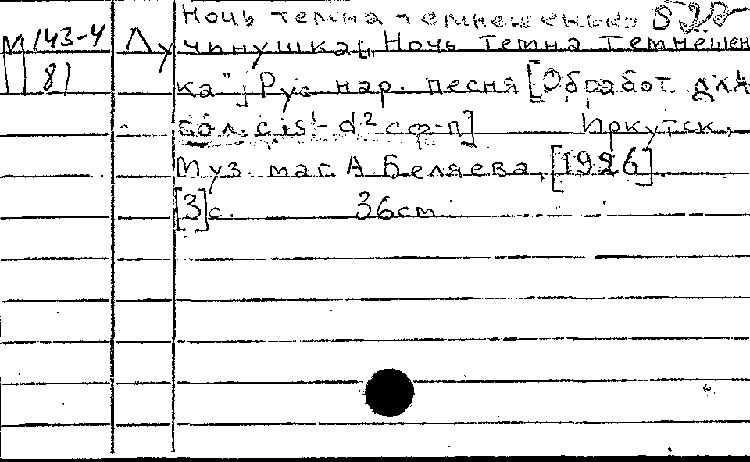 Ночь темна темнешенька 528
М 143-4 Лучинушка „Ночь темна темнешен
81 ка"; Рус. нар. песня [Обработ. для
гол. cis¹-d² с ф-п] Иркутск,
Муз. маг. А Беляева, [1926].
[3]с. 36см